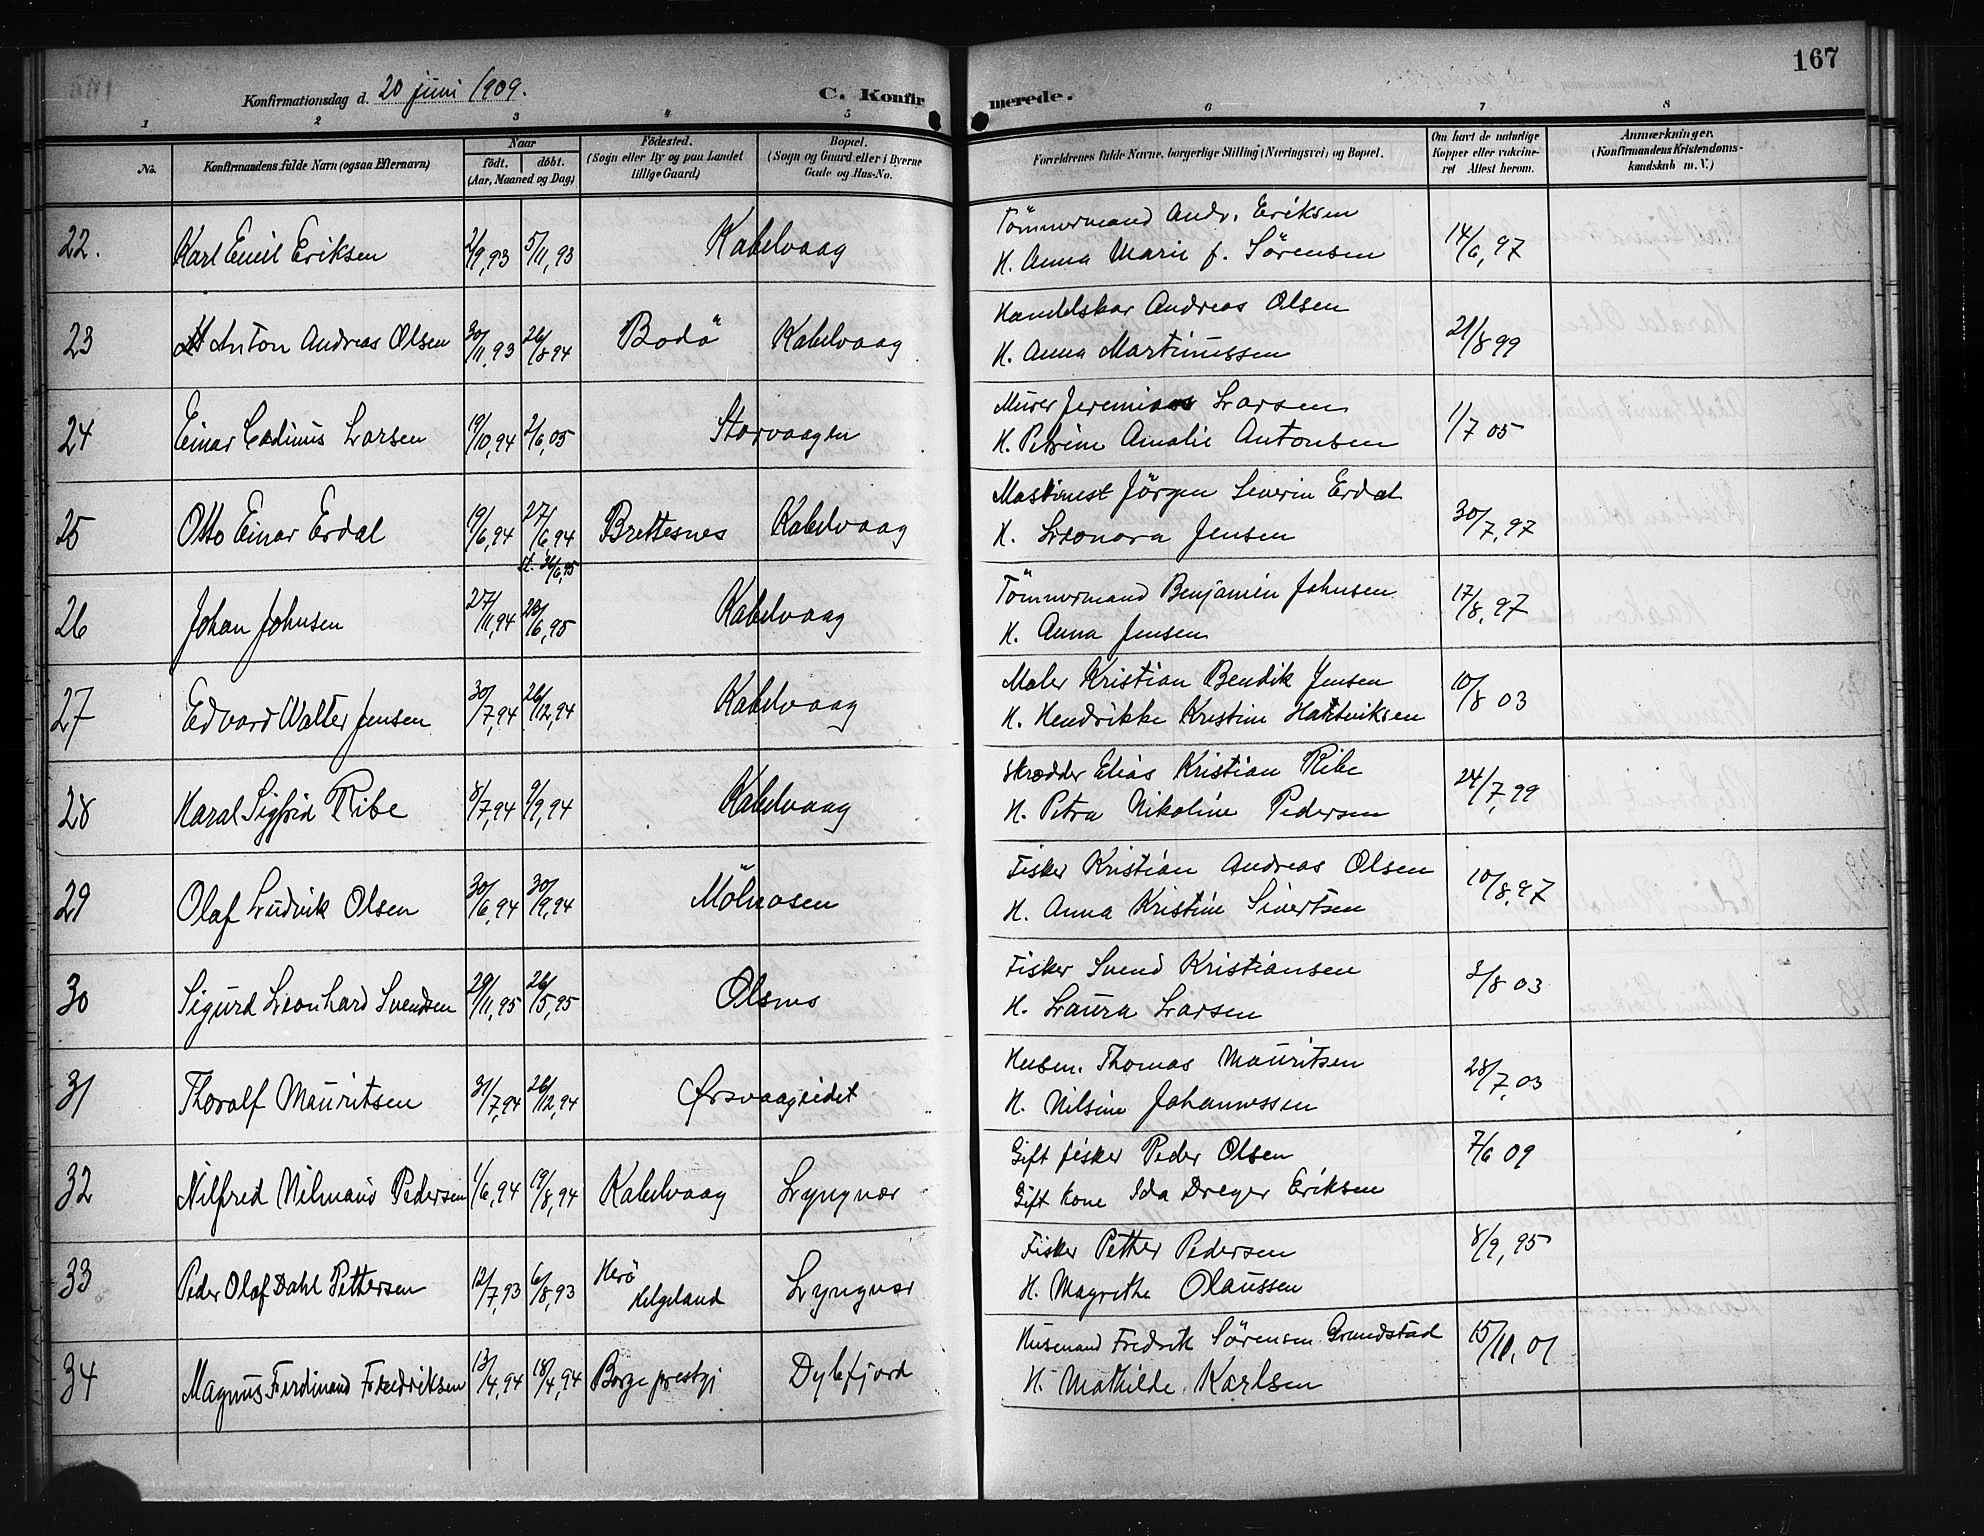 167
Konfirmationsdag d. 20 juni 1909. C. Konfirmerede.
1 2 3 4 5 6 7 8
No. Konfirmandens fulde Navn (ogsaa Efternavn) Naar født. døbt. (Aar, Maaned og Dag) Födested. (Sogn eller By og paa Landet tillige Gaard) Bopæl. (Sogn og Gaard eller i Byerne Gade og Hus-No. Forældrenes fulde Navne, borgerlige Stilling (Næringsvei) og Bopæl. Om havt de naturlige Kopper eller vakcineret Attest herom. Anmærkninger. (Konfirmandens Kristendomskundskab m. V.)
22. Karl Emil Eriksen 2/9,93 5/11,93 Kabelvaag Tömmermand Andr. Eriksen 14/6,97
H. Anna Marie f. Sörensen
23 Anton Andreas Olsen 30/11,93 26/8 94 Bodö Kabelvaag Handelskar Andreas Olsen 21/8 99
H. Anna Martinussen
24 Einar Edinius Larsen 19/10,94 2/6,05 Storvaagen Murer Jeremias Larsen 1/7 05
H. Petrine Amalie Antonsen
25 Otto Einar Erdal 19/6,94 27/6 94 Brettesnes Kabelvaag Maskinist Jörgen Severin Erdal 30/7,97
H. Leonora Jensen
26 Johan Johnsen 27/11,94 23/6,95 Kabelvaag Tömmermand Benjamin Johnsen 17/8,97
H. Anna Jensen
27 Edvard Walter Jensen 30/7,94 26/12,94 Kabelvaag Maler Kristian Bendik Jensen 10/8 03
H. Hendrikke Kristine Hartviksen
28 Haral Sigfrid Ribe 8/7,94 9/9,94 Kabelvaag Skrædder Elias Kristian Ribe 24/7,99
H. Petra Nikoline Pedersen
29 Olaf Ludvik Olsen 30/6,94 30/9,94 Mölnosen Fisker Kristian Andreas Olsen 10/8,97
H. Anna Kristine Sivertsen
30 Sigurd Leonhard Svendsen 29/11,95 26/5,95 Olsnes Fisker Svend Kristiansen 3/8 03
H. Laura Larsen
31 Thoralf Mauritsen 31/7,94 26/12,94 Ørsvaageidet Husm. Thomas Mauritsen 28/7,03
H. Nilsine Johannessen
32 Nilfred Nilmaus Pedersen 1/6,94 19/8,94 Kabelvaag Lyngvær Gift fisker Peder Olsen 7/6 09
Gift kone Ida Dreyer Eriksen
33 Peder Olaf Dahl Pettersen 12/7,93 6/8,93 Herö Helgeland Lyngvær Fisker Petter Pedersen 8/9,95
H. Magrethe Olaussen
34 Magnus Ferdinand Fredriksen 13/4,94 18/4,94 Borge prestgj Dybfjord Husmand Fredrik Sörensen Grundstad 15/10,01
H. Mathilde Karlsen